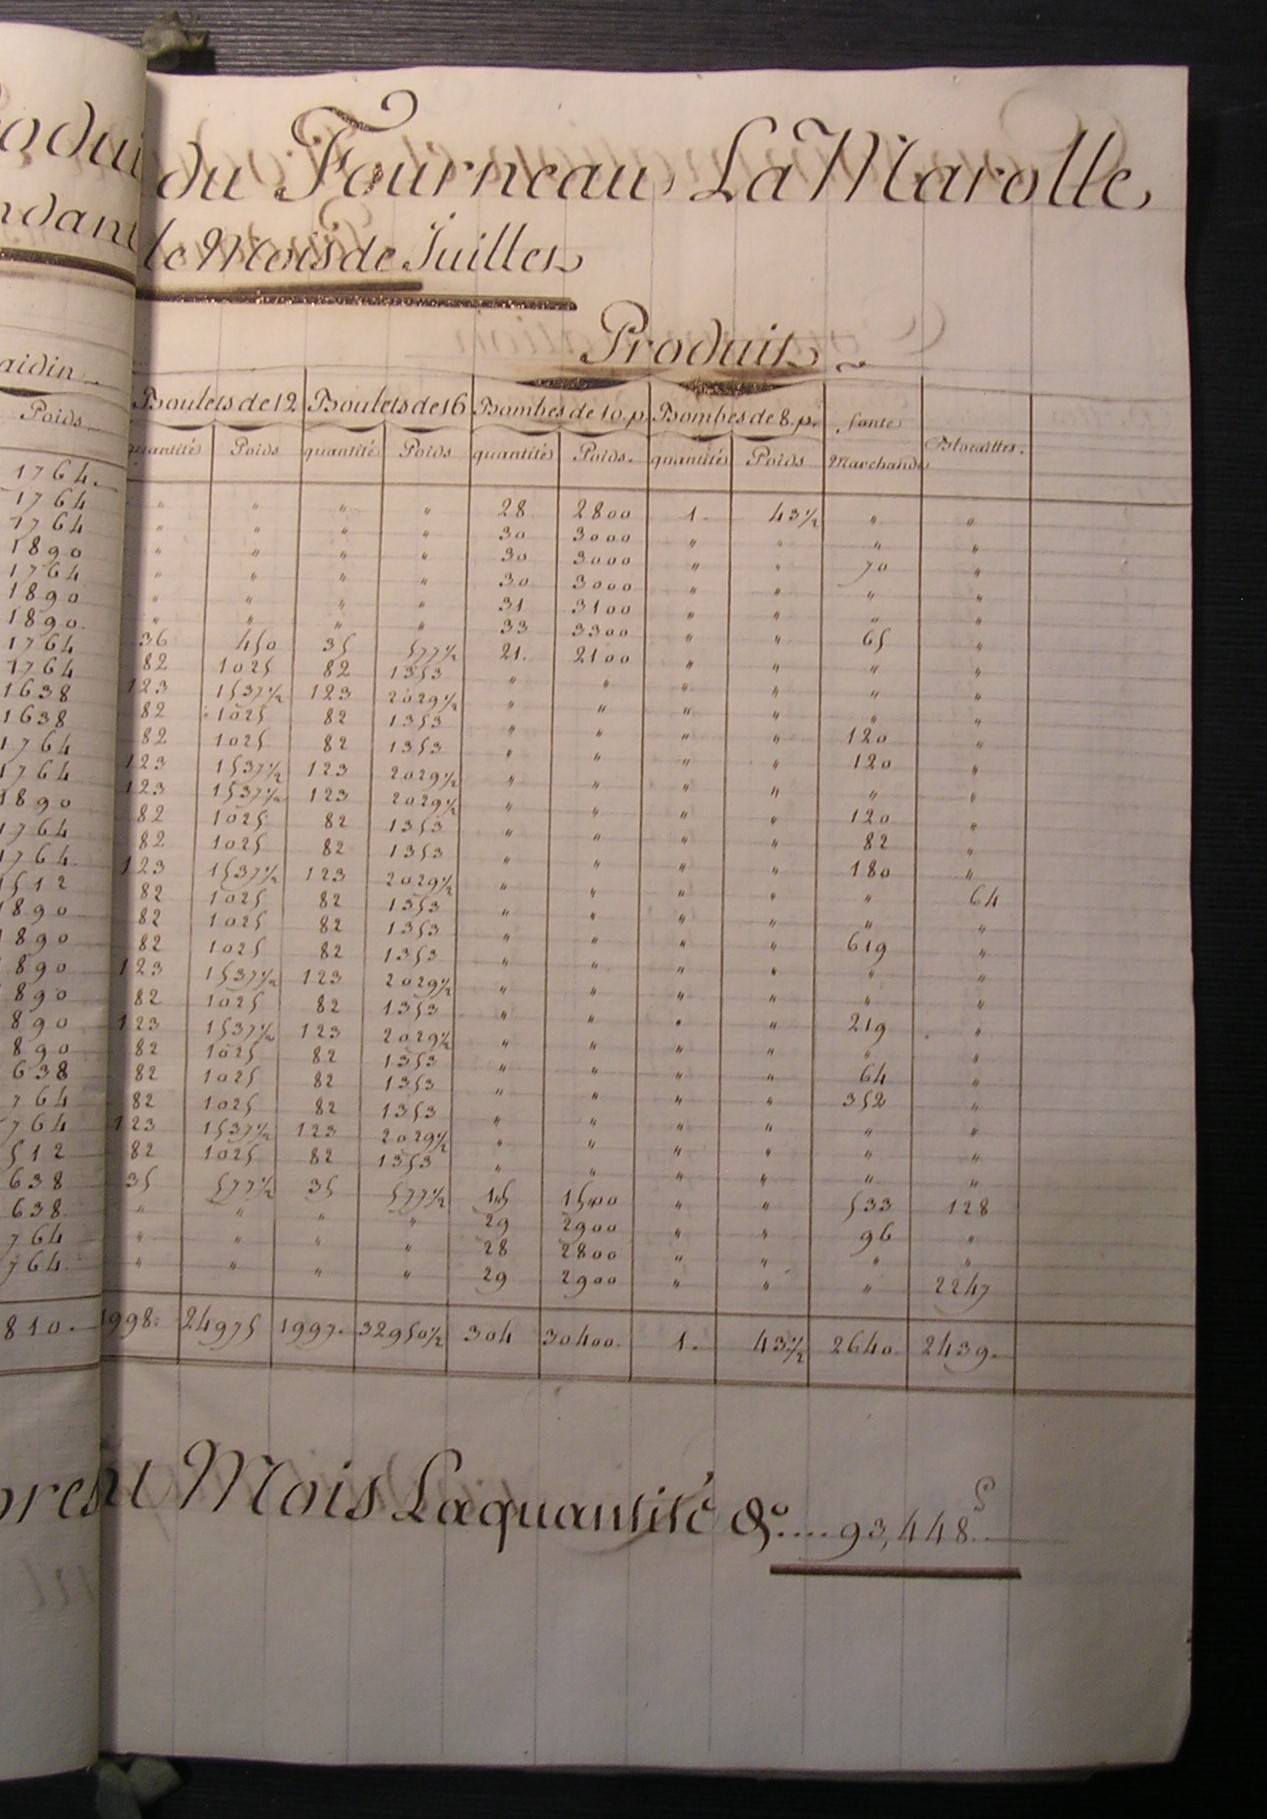 oduit du Fourneau La Marolle
ndant le Mois de Juillet
Produit
aidin
Boulets de 12 Boulets de 16 Bombes de 10. p. Bombes de 8. p. fonte Blocailles.
Poids quantité Poids quantité Poids quantités Poids. quantités Poids Marchande
1764. " " " " 28 2800 1. 43½ " "
1764 " " " " 30 3000 " " " "
1764 " " " " 30 3000 " " 70 "
1890 " " " " 30 3000 " " " "
1764 " " " " 31 3100 " " " "
1890 " " " " 33 3300 " " 65 "
1890. 36 450 35 577½ 21. 2100 " " " "
1764 82 1025 82 1353 " " " " " "
1764 123 1537½ 123 2029½ " " " " " "
1638 82 1025 82 1353 " " " " 120 "
1638 82 1025 82 1353 " " " " 120 "
1764 123 1537½ 123 2029½ " " " " " "
1764 123 1537½ 123 2029½ " " " " 120 "
1890 82 1025 82 1353 " " " " 82 "
1764 82 1025 82 1353 " " " " 180 "
1764 123 1537½ 123 2029½ " " " " " 64
1512 82 1025 82 1353 " " " " " "
1890 82 1025 82 1353 " " " " 619 "
1890 82 1025 82 1353 " " " " " "
890 123 1537½ 123 2029½ " " " " " "
890 82 1025 82 1353 " " " " 219 "
890 123 1537½ 123 2029½ " " " " " "
890 82 1025 82 1353 " " " " 64 "
638 82 1025 82 1353 " " " " 352 "
764 82 1025 82 1353 " " " " " "
764 123 1537½ 123 2029½ " " " " " "
512 82 1025 82 1353 " " " " " "
638 35 577½ 35 577½ 15 1500 " " 533 128
638 " " " " 29 2900 " " 96 "
764 " " " " 28 2800 " " " "
764. " " " " 29 2900 " " " 2247
810. 1998. 24975 1997. 32950½ 304 30400. 1. 43½ 2640. 2439.
present Mois La quantité &c.... 93,448.